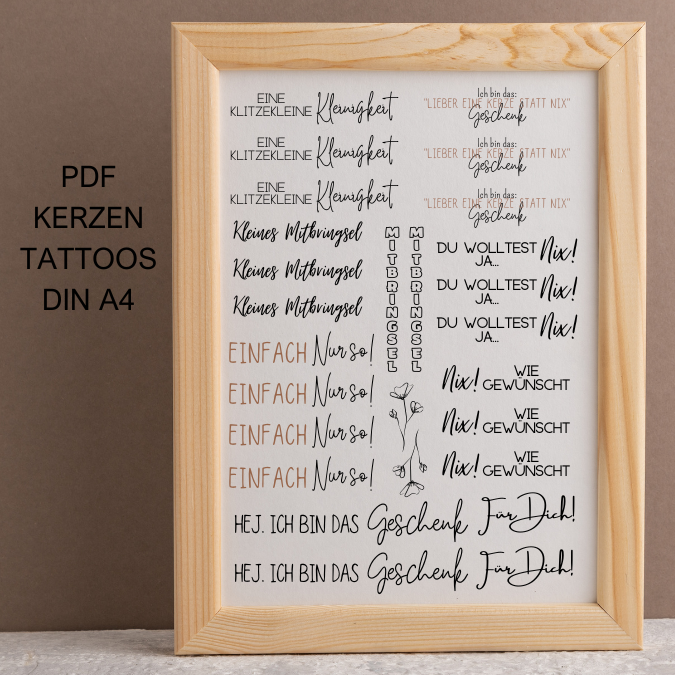 PDF
KERZEN
TATTOOS
DIN A4
EINE
KLITZEKLEINE Kleinigkeit
EINE
KLITZEKLEINE Kleinigkeit
EINE
KLITZEKLEINE Kleinigkeit
Ich bin das:
"LIEBER EINE KERZE STATT NIX"
Geschenk
Ich bin das:
"LIEBER EINE KERZE STATT NIX"
Geschenk
Ich bin das:
"LIEBER EINE KERZE STATT NIX"
Geschenk
Kleines Mitbringsel
Kleines Mitbringsel
Kleines Mitbringsel
MITBRINGSEL
MITBRINGSEL
DU WOLLTEST Nix!
JA...
DU WOLLTEST Nix!
JA...
DU WOLLTEST Nix!
JA...
EINFACH Nur so!
EINFACH Nur so!
EINFACH Nur so!
EINFACH Nur so!
Nix! WIE
GEWÜNSCHT
Nix! WIE
GEWÜNSCHT
Nix! WIE
GEWÜNSCHT
HEJ. ICH BIN DAS Geschenk Für Dich!
HEJ. ICH BIN DAS Geschenk Für Dich!